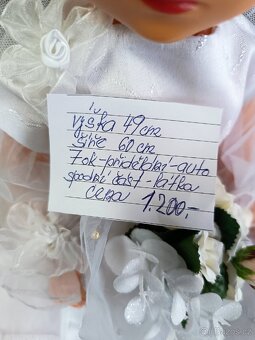 výška 49 cm
šíře 60 cm
7ok-přidělání-auto
spodní část-látka
cena 1.200,-